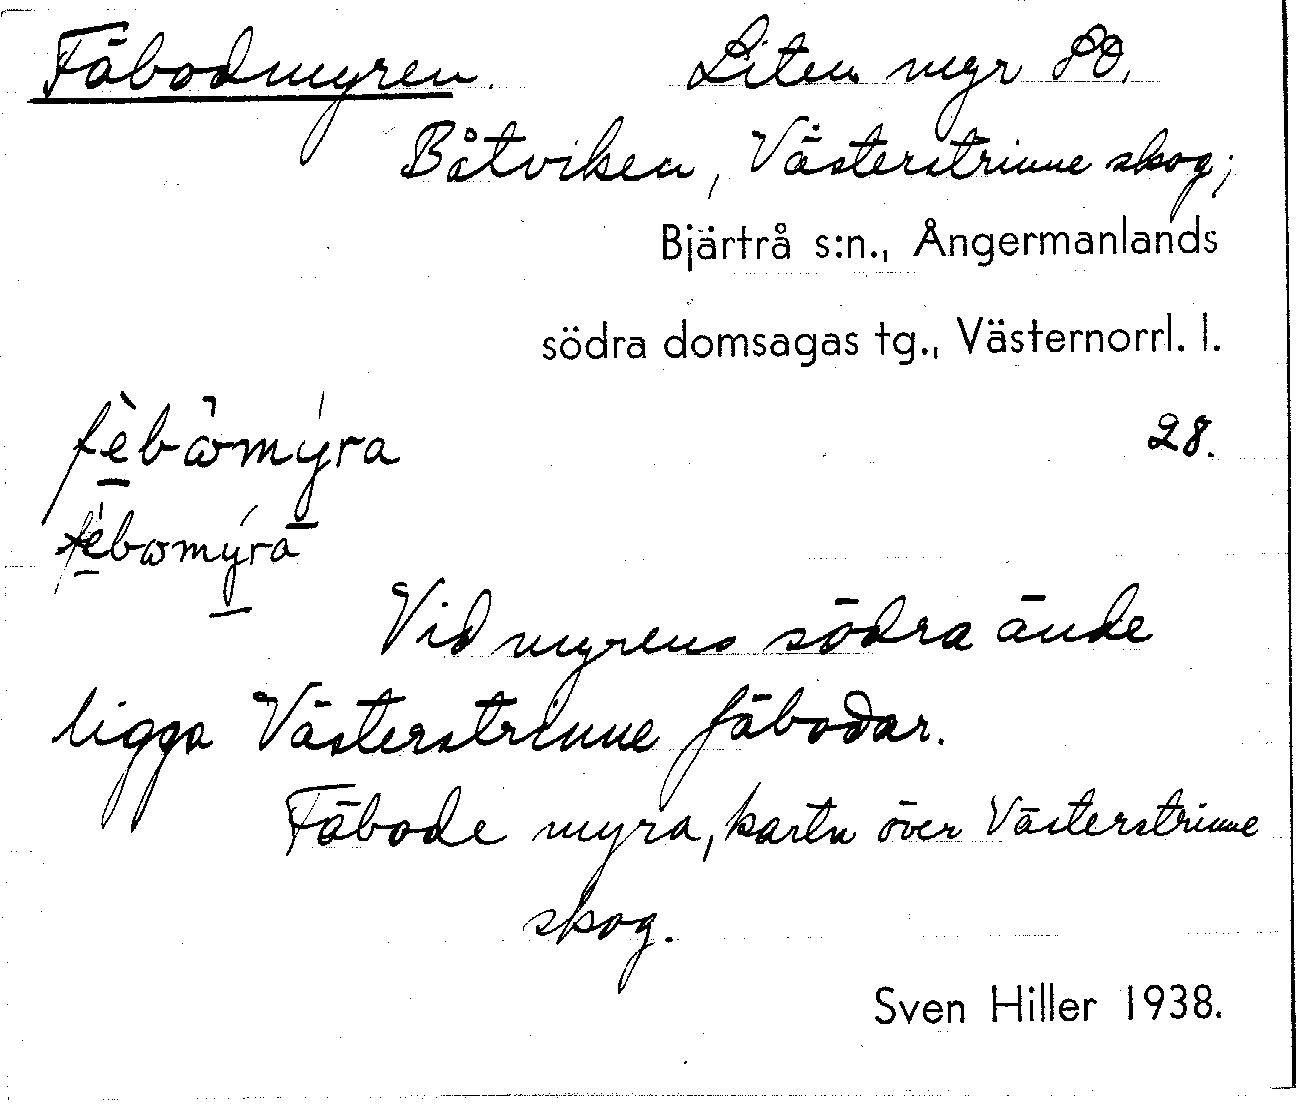 Fäbodmyren. Liten myr SO.
Båtviken, Västerstrinne skog;
Bjärtrå s:n., Ångermanlands
södra domsagas tg., Västernorrl. l.
28.
Vid myrens södra ände
ligga Västerstrinne fäbodar.
Fäbode myra, karta över Västerstrinne
skog.
Sven Hiller 1938.